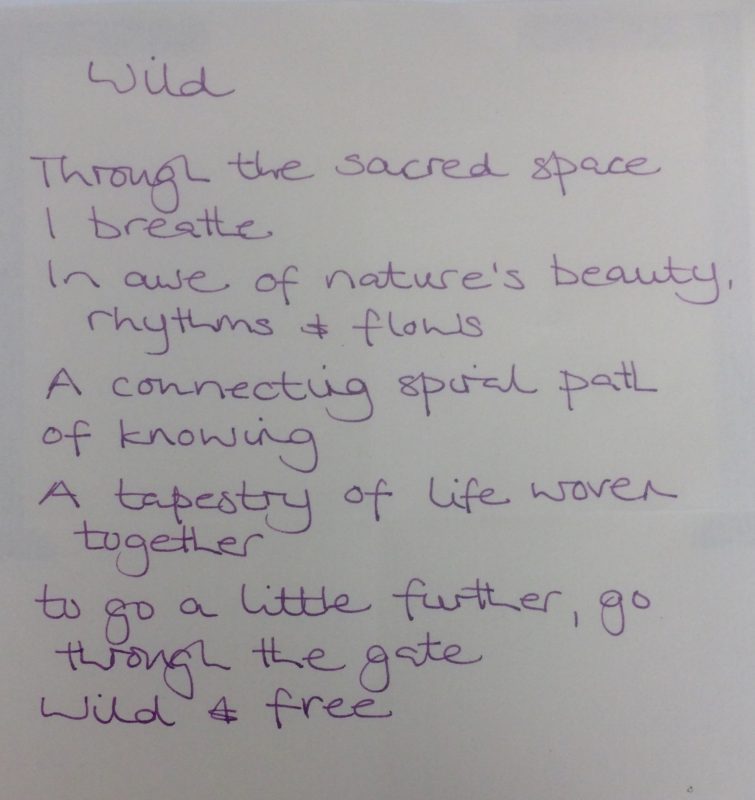 Wild
Through the sacred space
I breathe
In awe of nature's beauty,
rhythms & flows
A connecting spiral path
of knowing
A tapestry of life woven
together
to go a little further, go
through the gate
Wild & free